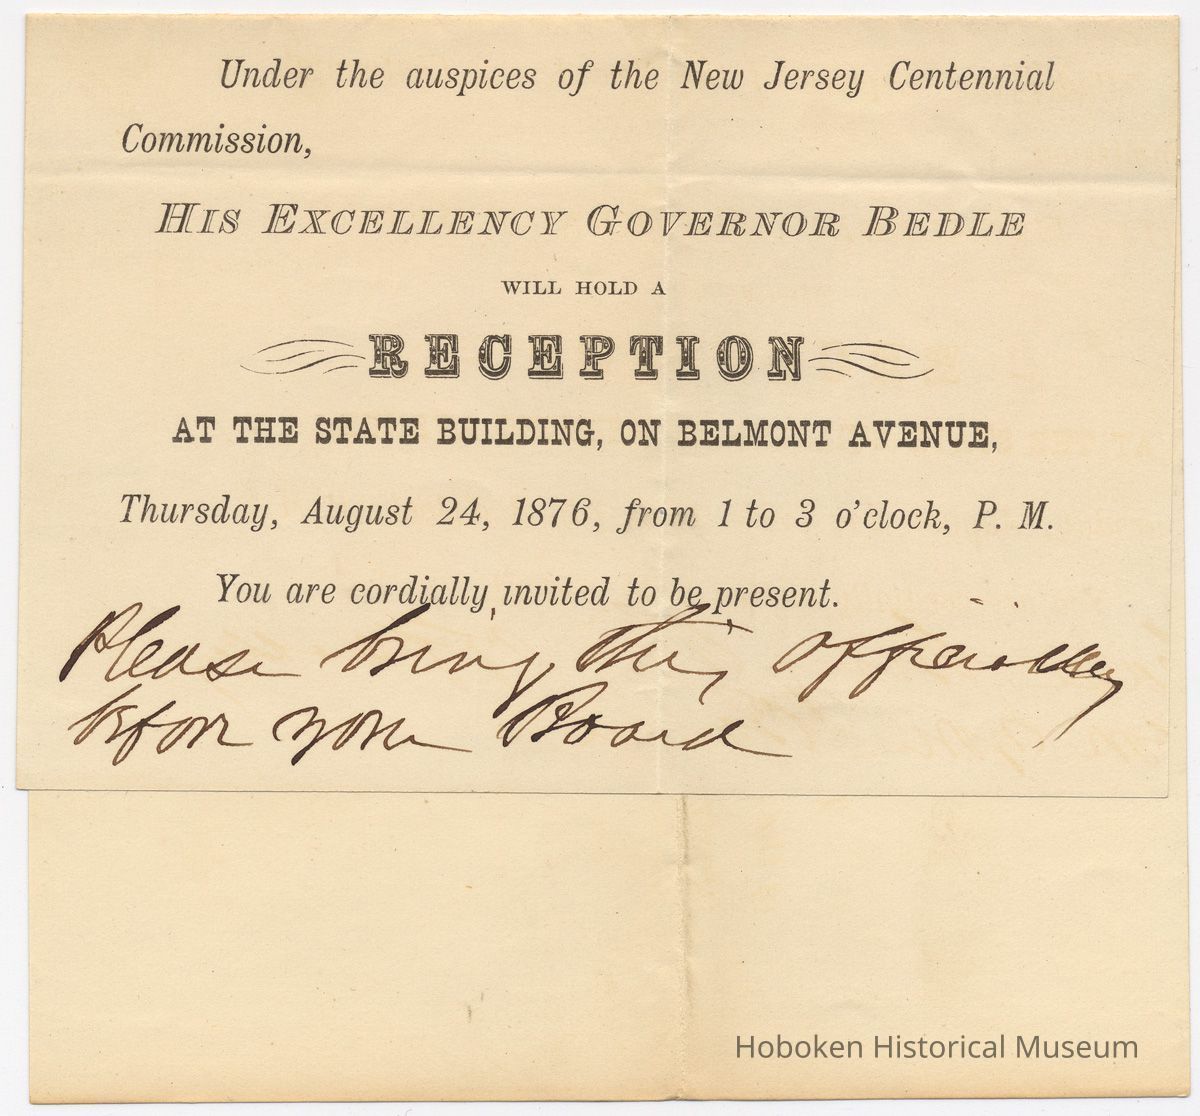 Under the auspices of the New Jersey Centennial
Commission,
HIS EXCELLENCY GOVERNOR BEDLE
WILL HOLD A
RECEPTION
AT THE STATE BUILDING, ON BELMONT AVENUE,
Thursday, August 24, 1876, from 1 to 3 o'clock, P. M.
You are cordially invited to be present.
Please bring this officially
before your Board
Hoboken Historical Museum